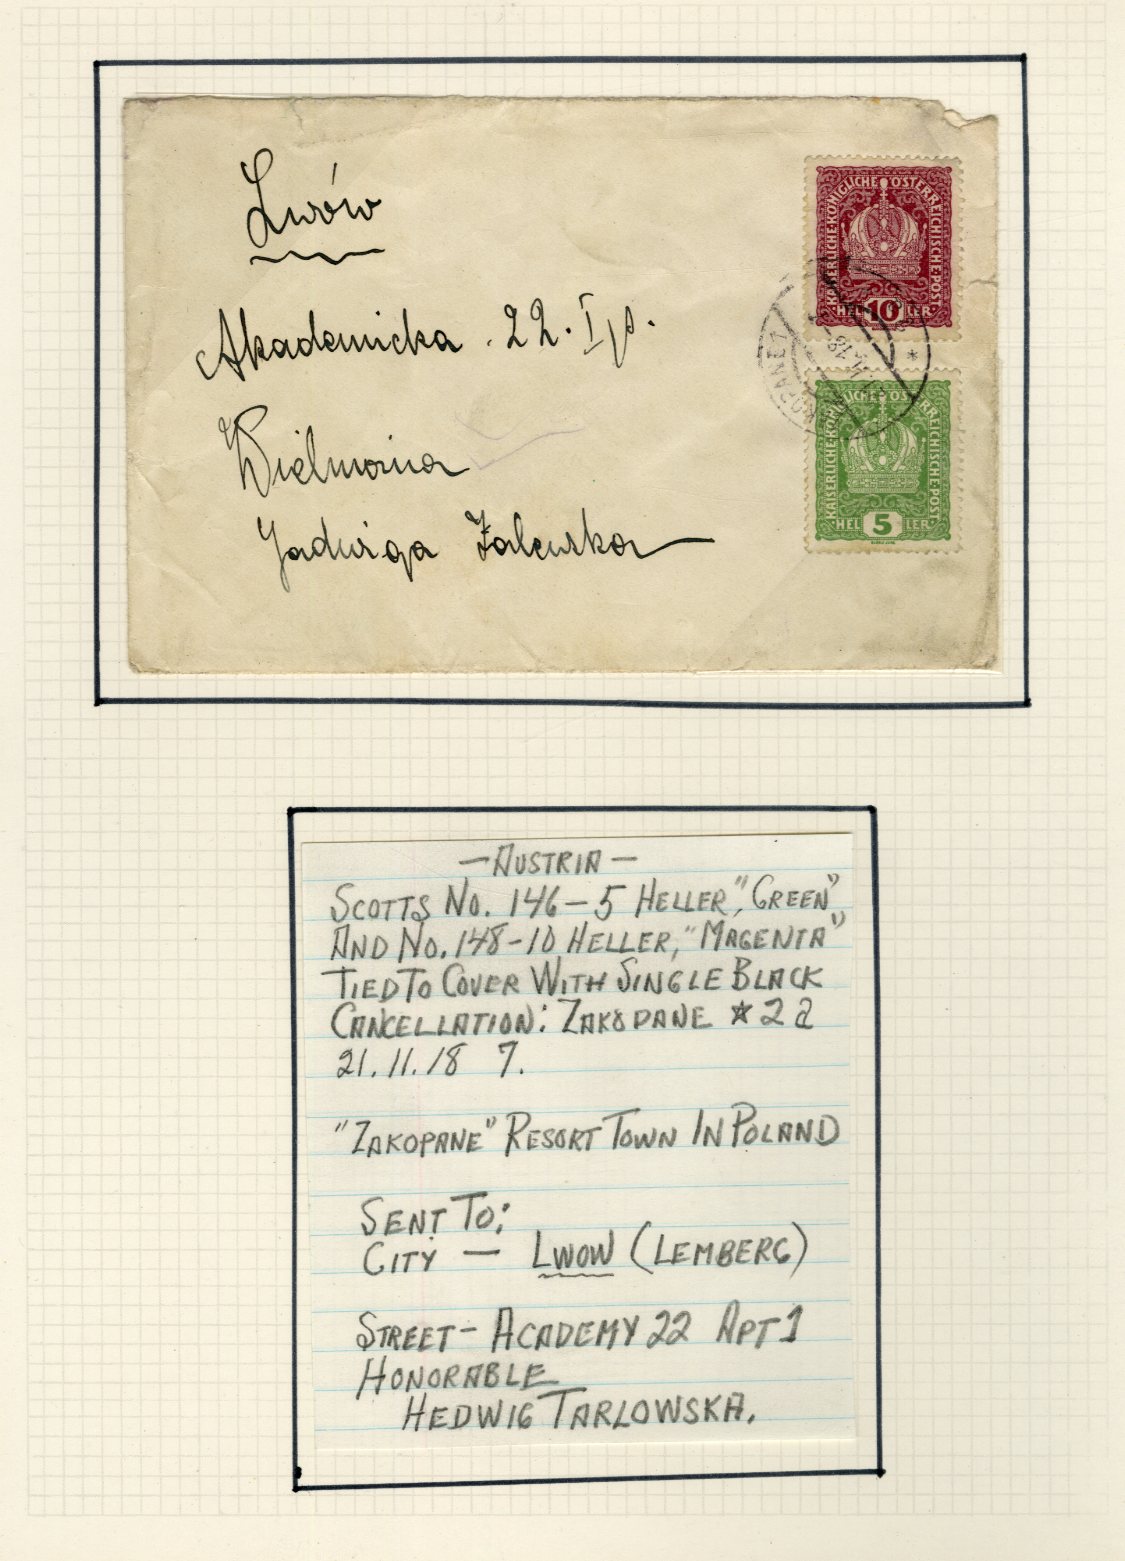 Lwów
Akademicka . 22. I p.
Wielmożna
Jadwiga Zalewska
KAISERLICHE·KÖNIGLICHE ÖSTERREICHISCHE·POST
HEL 10 LER
KAISERLICHE·KÖNIGLICHE ÖSTERREICHISCHE·POST
HEL 5 LER
— AUSTRIA —
SCOTTS NO. 146 – 5 HELLER, "GREEN"
AND NO. 148 – 10 HELLER, "MAGENTA"
TIED TO COVER WITH SINGLE BLACK
CANCELLATION: ZAKOPANE ★ 2 a
21.11.18 7.
"ZAKOPANE" RESORT TOWN IN POLAND
SENT TO:
CITY — LWOW (LEMBERG)
STREET – ACADEMY 22 APT 1
HONORABLE
HEDWIG TARLOWSKA.